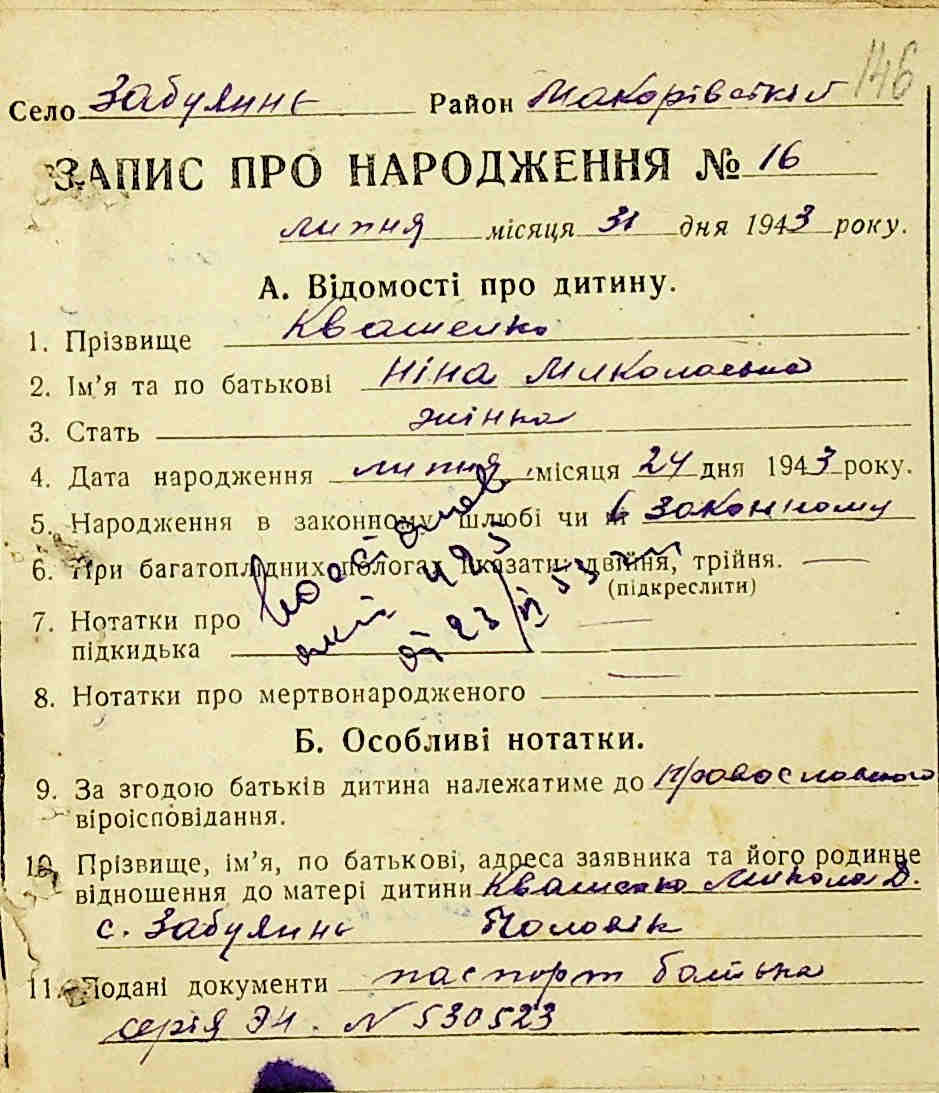 146
Село Забуянь Район Макорівській
ЗАПИС ПРО НАРОДЖЕННЯ № 16
липня місяця 31 дня 1943 року.
А. Відомості про дитину.
1. Прізвище Квашенко
2. Ім'я та по батькові Ніна Миколаєвна
3. Стать жінка
4. Дата народження липня місяця 24 дня 1943 року.
5. Народження в законному шлюбі чи ні в законному
6. При багатоплідних пологах вказати: двійня, трійня. —
(підкреслити)
7. Нотатки про
підкидька —
8. Нотатки про мертвонародженого —
495
23/VI 53
Б. Особливі нотатки.
9. За згодою батьків дитина належатиме до православного
віроісповідання.
10. Прізвище, ім'я, по батькові, адреса заявника та його родинне
відношення до матері дитини Квашенко Микола Д.
с. Забуянь Чоловік
11. Подані документи паспорт батька
серія ЭЧ. N 530523